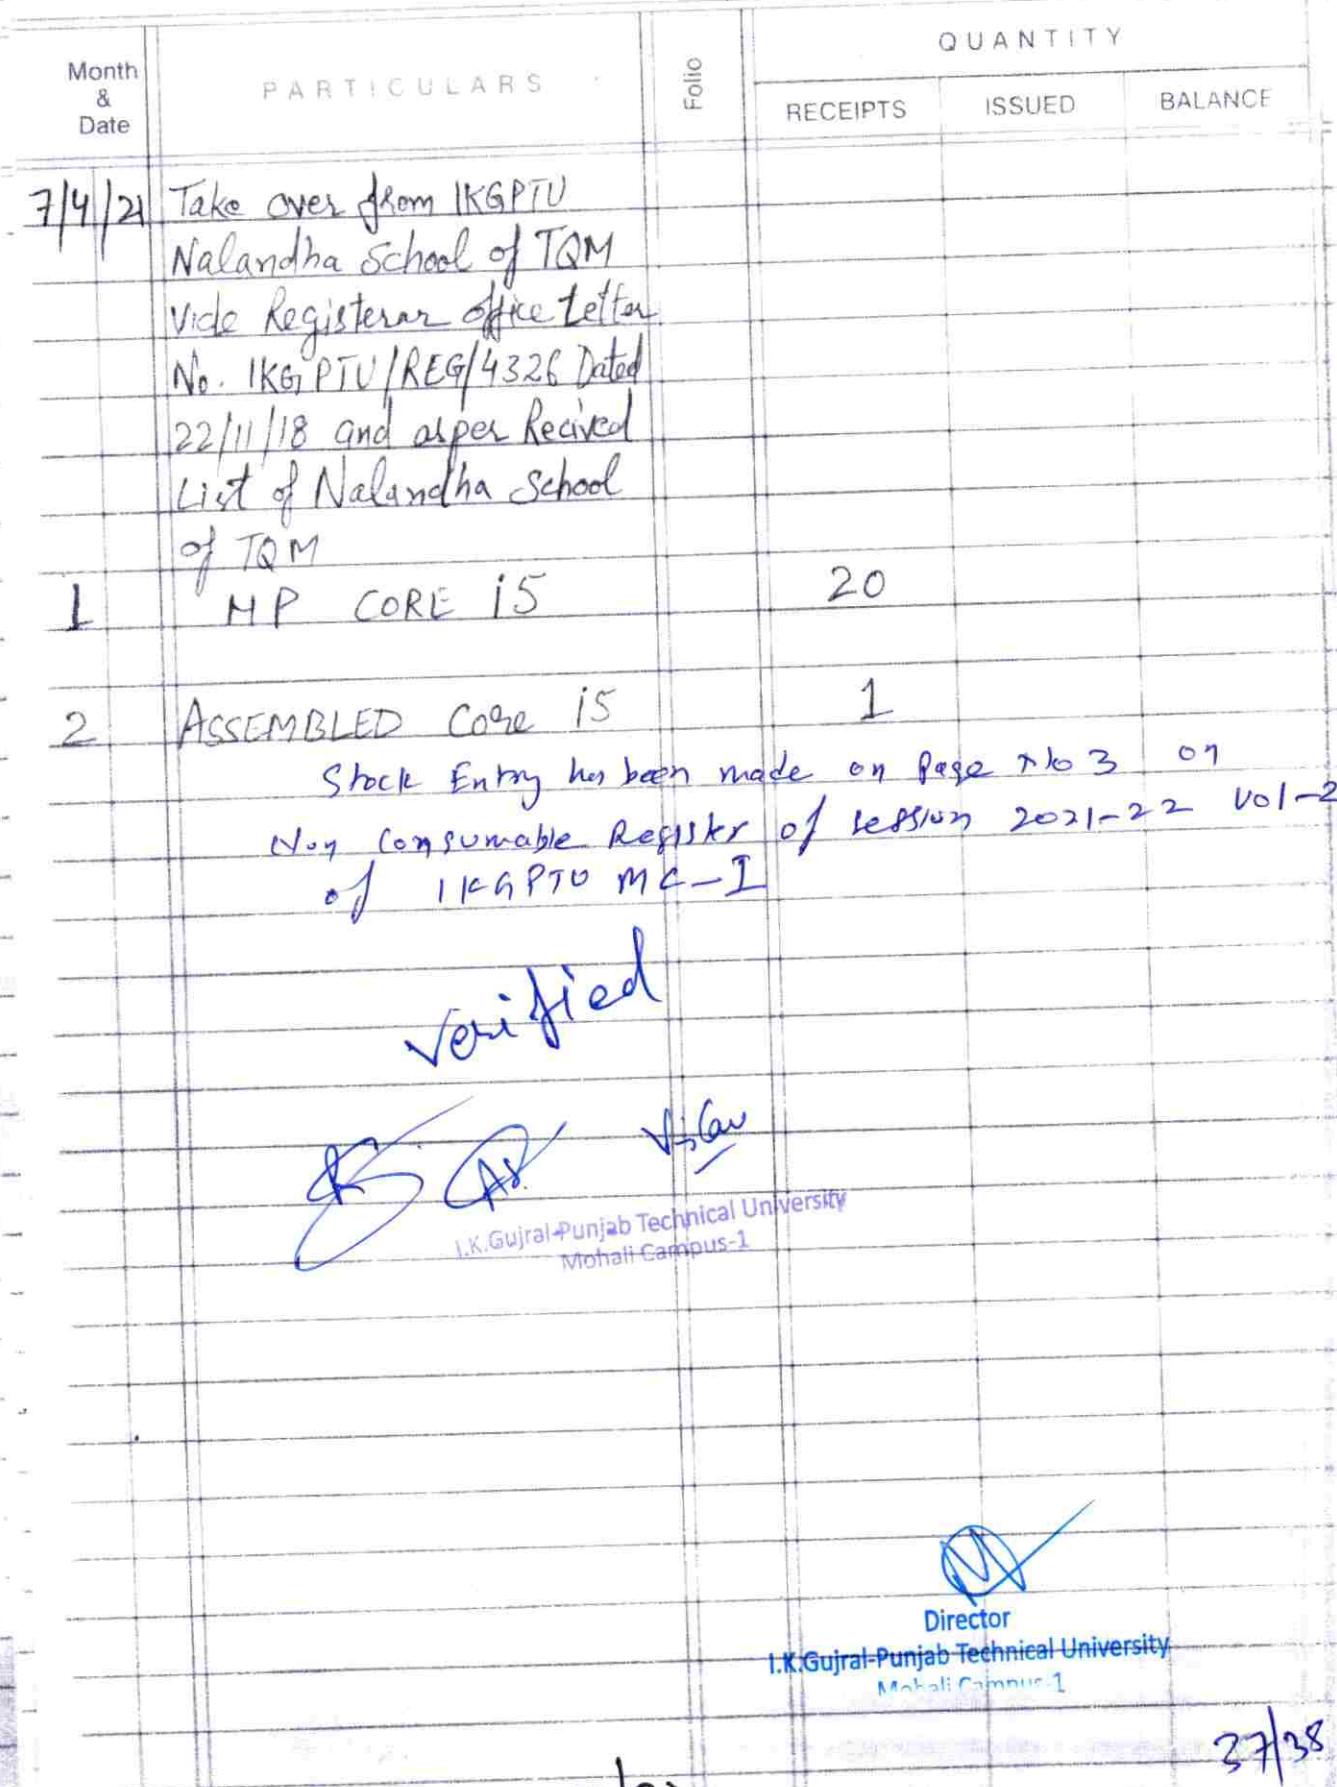 QUANTITY
Month
&
Date
PARTICULARS
Folio
RECEIPTS ISSUED BALANCE
7/4/21 Take over from IKGPTU
Nalandha School of TQM
Vide Registerar office Letter
No. IKGPTU/REG/4326 Dated
22/11/18 and as per Recived
List of Nalandha School
of TQM
1 HP CORE i5 20
2 ASSEMBLED Core i5 1
Stock Entry has been made on Page No 3 on
Non Consumable Register of session 2021-22 Vol-2
of IKGPTU MC-I
Verified
I.K.Gujral Punjab Technical University
Mohali Campus-1
Director
I.K.Gujral Punjab Technical University
Mohali Campus-1
37/38